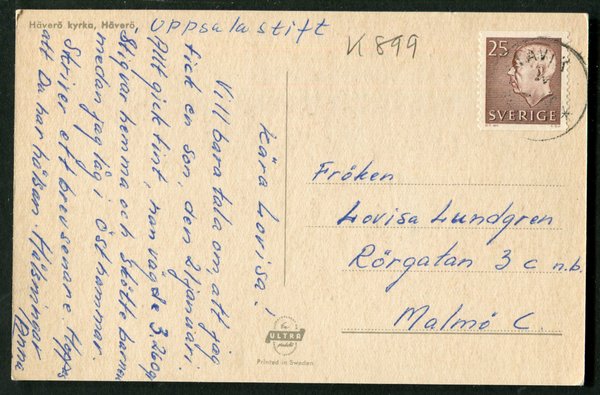 Häverö kyrka, Häverö,
uppsala stift
K 899
25
SVERIGE
Kära Lovisa!
Vill bara tala om att jag
fick en son, den 21 januari.
Allt gick fint, han vägde 3.260 gr
Stig var hemma och skötte barnen
medan jag låg i Östhammar.
Skriver ett brev senare. Hoppas
att Du har hälsan. Hälsningar
Fröken
Lovisa Lundgren
Rörgatan 3 c n.b.
Malmö C.
ULTRA
Printed in Sweden